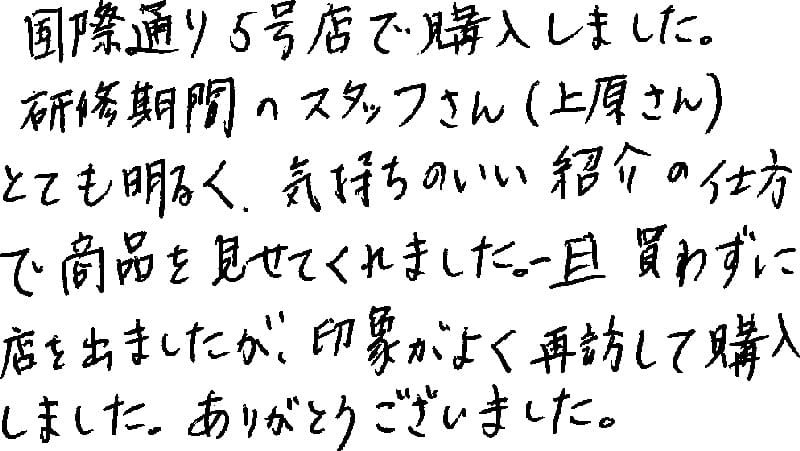 国際通り5号店で購入しました。
研修期間のスタッフさん(上原さん)
とても明るく、気持ちのいい紹介の仕方
で商品を見せてくれました。一旦買わずに
店を出ましたが、印象がよく再訪して購入
しました。ありがとうございました。